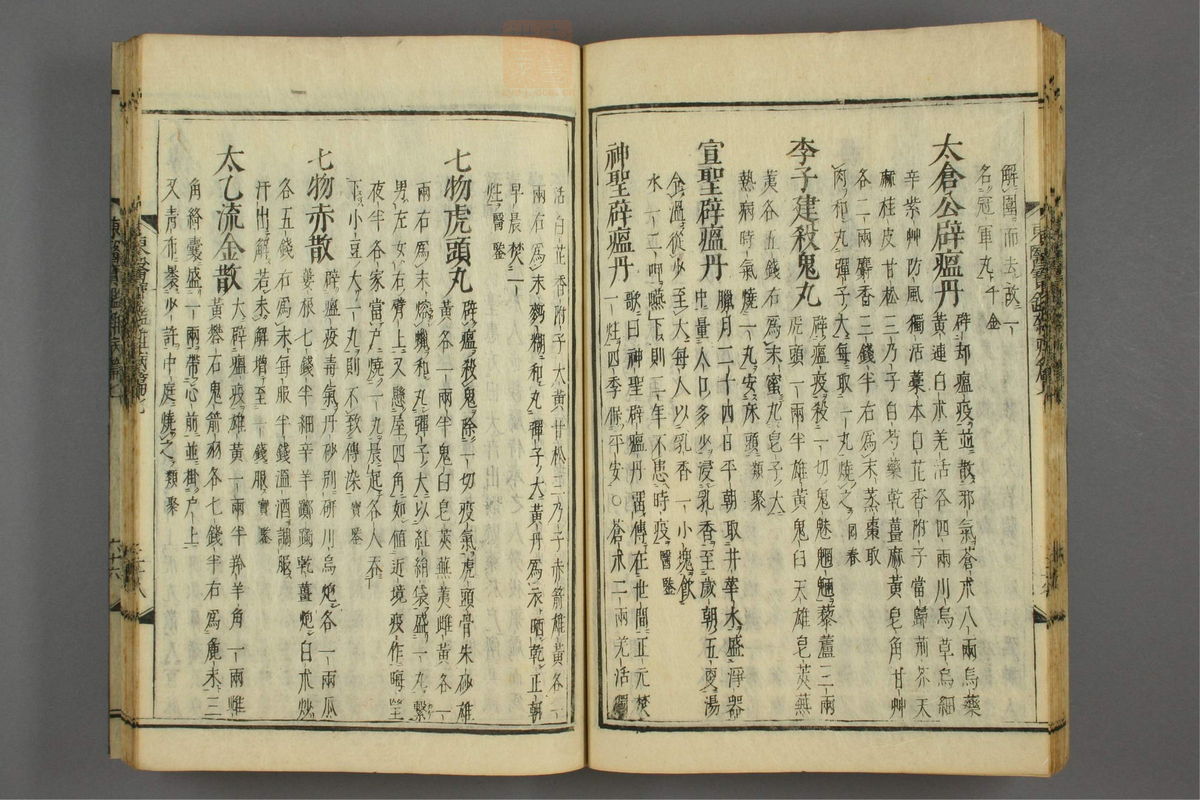 解圍而去故一
名冠軍丸千金
太倉公辟瘟丹
辟却瘟疫並散邪氣蒼朮八兩烏藥
黃連白朮羌活各四兩川烏草烏細
辛紫艸防風獨活藁本白芷香附子當歸荊芥天
麻桂皮甘松三乃子白芍藥乾薑麻黃皂角甘艸
各二兩麝香三錢半右爲末蒸棗取
肉和丸彈子大每取一丸燒之回春
李子建殺鬼丸
辟瘟疫殺一切鬼魅魍魎藜蘆三兩
虎頭一兩半雄黃鬼臼天雄皂莢蕪
荑各五錢右爲末蜜丸皂子大
熱病時氣燒一丸安床頭類聚
宣聖辟瘟丹
臘月二十四日平朝取井華水盛淨器
中量人口多少浸乳香至歲朝五更湯
令溫從少至大每人以乳香一小塊飲
水一二呷嚥下則一年不患時疫醫鑒
神聖辟瘟丹
歌曰神聖辟瘟丹留傳在世間正元焚
一炷四季保平安○蒼朮二兩羌活獨
活白芷香附子大黃甘松三乃子赤箭雄黃各一
兩右爲末麪糊和丸彈子大黃丹爲衣晒乾正朝
早晨焚一
炷醫鑒
七物虎頭丸
辟瘟殺鬼除一切疫氣虎頭骨朱砂雄
黃各一兩半鬼臼皂莢蕪荑雌黃各一
兩右爲末熔蠟和丸彈子大以紅絹袋盛一丸繫
男左女右臂上又懸屋四角如值近境疫作晦望
夜半各家當戶燒一丸晨起各人吞
下小豆大一丸則不致傳染寶鑑
七物赤散
辟瘟疫毒氣丹砂別研川烏炮各一兩瓜
蔞根七錢半細辛羊躑躅乾薑炮白朮炒
各五錢右爲末每服半錢溫酒調服
汗出解若未解增至一錢服寶鑑
太乙流金散
大辟瘟疫雄黃一兩半羚羊角一兩雌
黃礬石鬼箭羽各七錢半右爲麁末三
角絳囊盛一兩帶心前並掛戶上
又靑布裹少許中庭燒之類聚